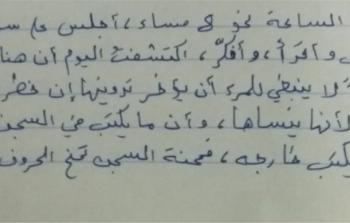 الساعة نحو 8 مساء، أجلس على
وأقرأ، وأفكّر، اكتشفت اليوم أن هنا
لا ينبغي للمرء أن يؤخر تدوينها إن خطر
لأنها ينساها، وأن ما يكتب في السجن
يكتب خارجه، فمحنة السجن تمنح الحروف